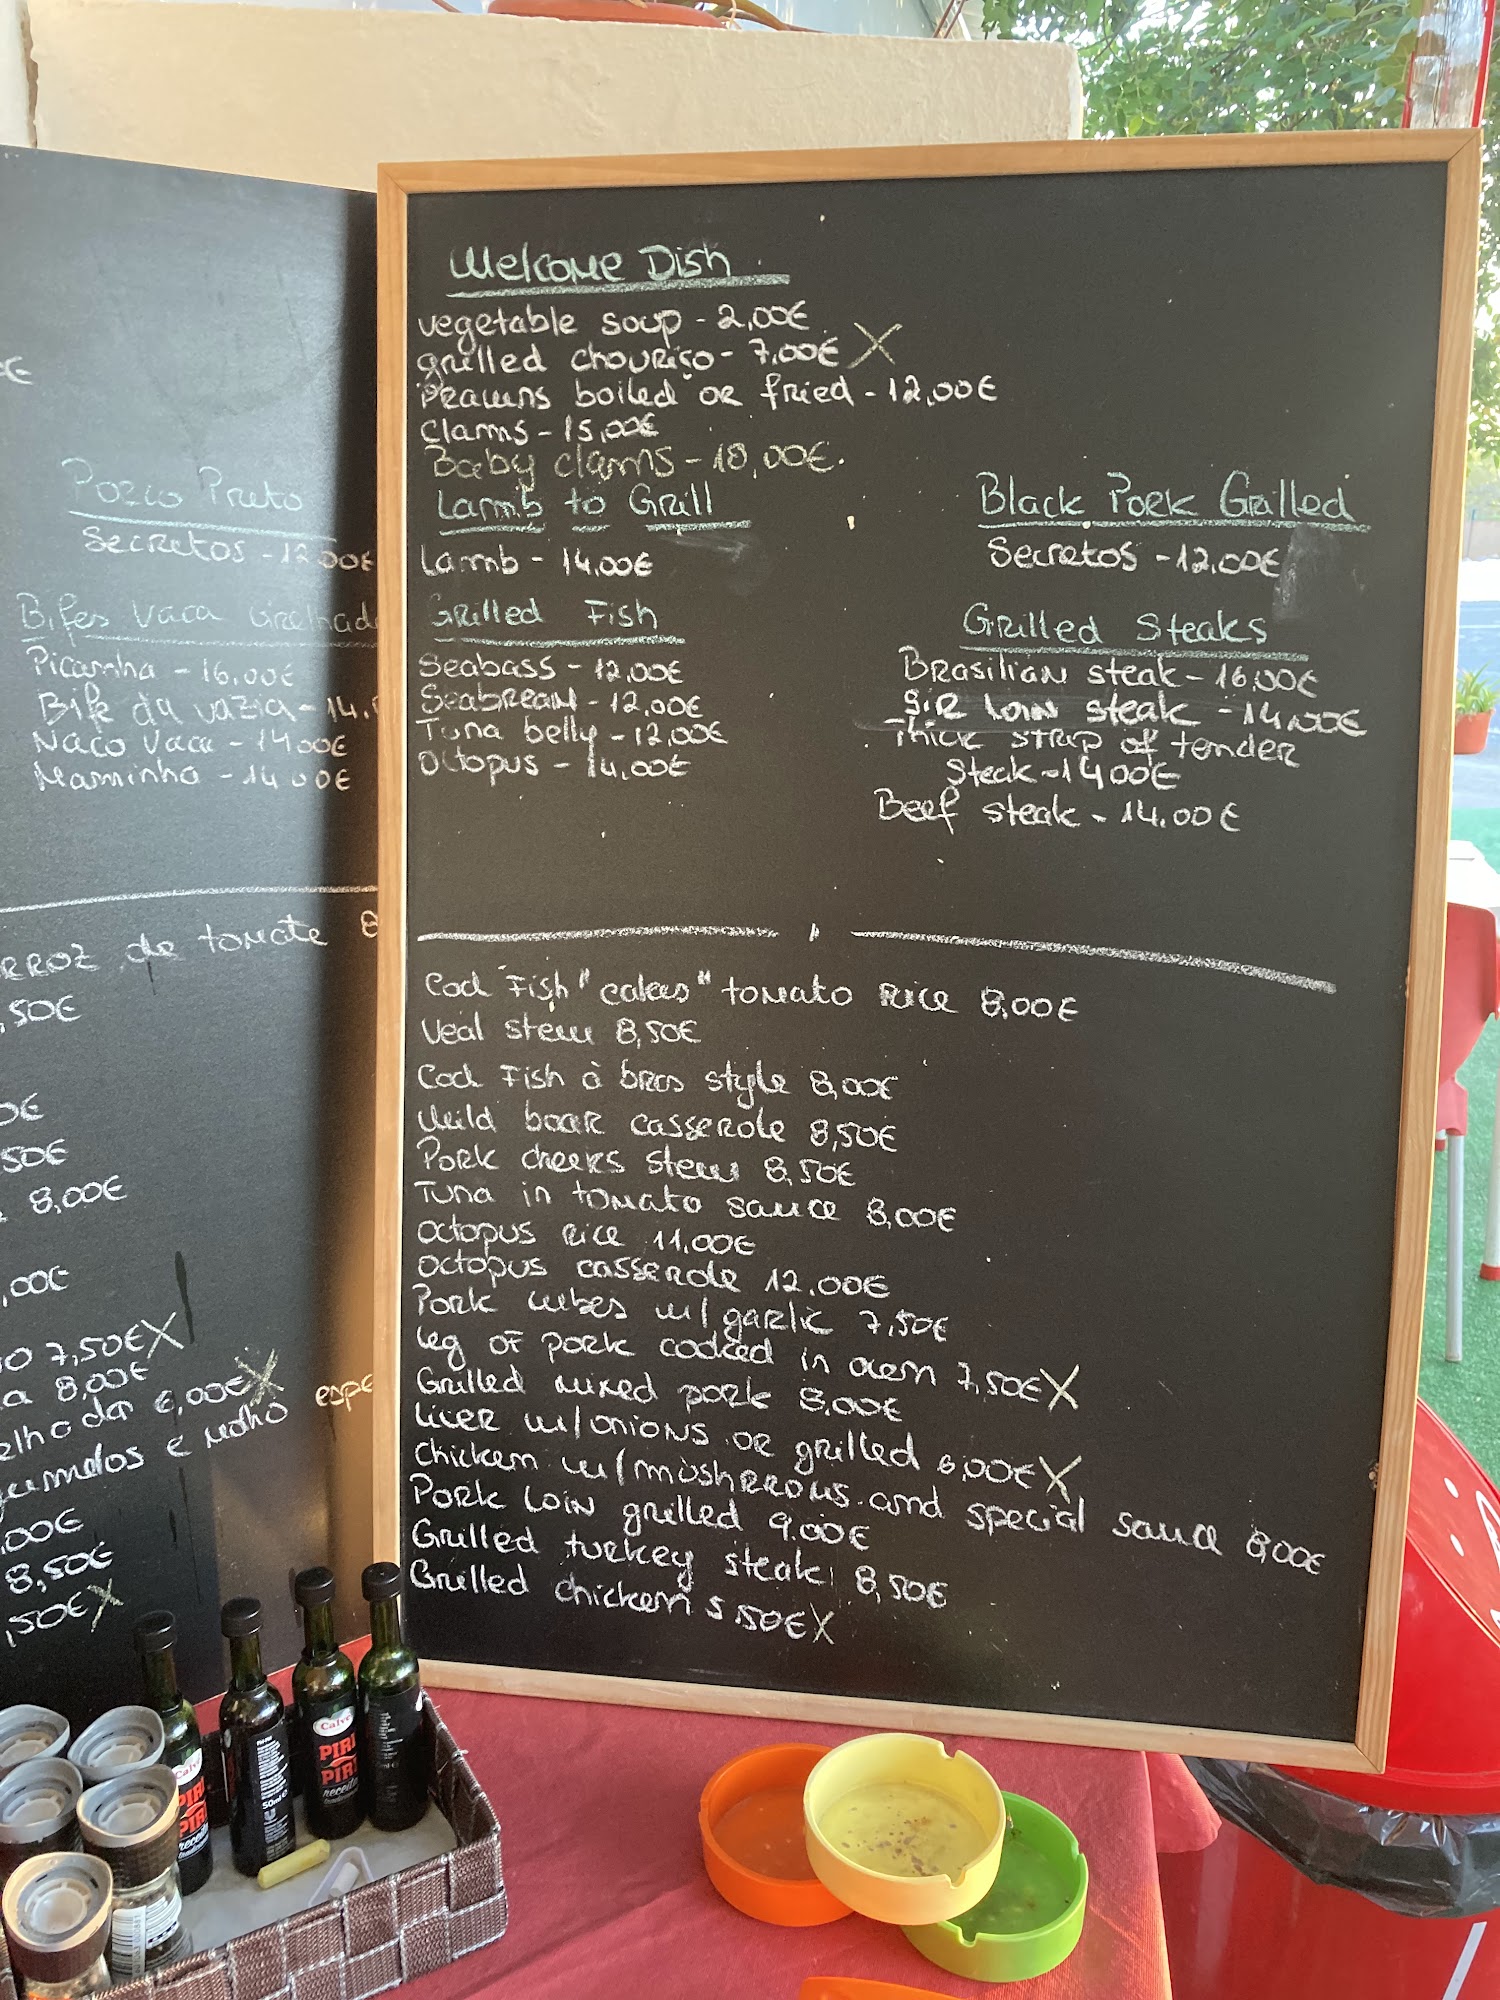 Welcome Dish
vegetable soup - 2,00€
grilled chouriço - 7,00€ X
Prawns boiled or fried - 12,00€
Clams - 15,00€
Baby clams - 18,00€.
Lamb to Grill
Lamb - 14,00€
Grilled Fish
Seabass - 12,00€
Seabream - 12,00€
Tuna belly - 12,00€
Octopus - 14,00€
Black Pork Grilled
Secretos - 12,00€
Grilled Steaks
Brasilian steak - 16,00€
Sir Loin steak - 14,00€
Thick strip of tender
steak - 14 00€
Beef steak - 14.00€
Cod Fish "cakes" tomato rice 8,00€
Veal stew 8,50€
Cod Fish à bras style 8,00€
Wild boar casserole 8,50€
Pork cheeks stew 8,50€
Tuna in tomato sauce 8,00€
Octopus rice 11,00€
Octopus casserole 12.00€
Pork cubes w/garlic 7,50€
Leg of pork cooked in oven 7,50€ X
Grilled mixed pork 8,00€
Liver w/onions or grilled 6,00€ X
Chicken w/mushrroms and special sauce 8,00€
Pork Loin grilled 9.00€
Grilled turkey steak 8,50€
Grilled chicken 5.50€ X
€
Porco Preto
Secretos - 12,00€
Bifes Vaca Grelhad
Picanha - 16,00€
Bife da vazia - 14.
Naco Vaca - 14 00€
Maminha - 14 00€
rroz de tomate 8
,50€
0€
50€
8,00€
,00€
o 7,50€ X
a 8,00€
elho dar 6,00€ X
gumelos e molho espe
,00€
8,50€
,50€ X
Calvé
PIRI
PIRI
receita
50ml e
Calvé
PIRI
PIRI
receita